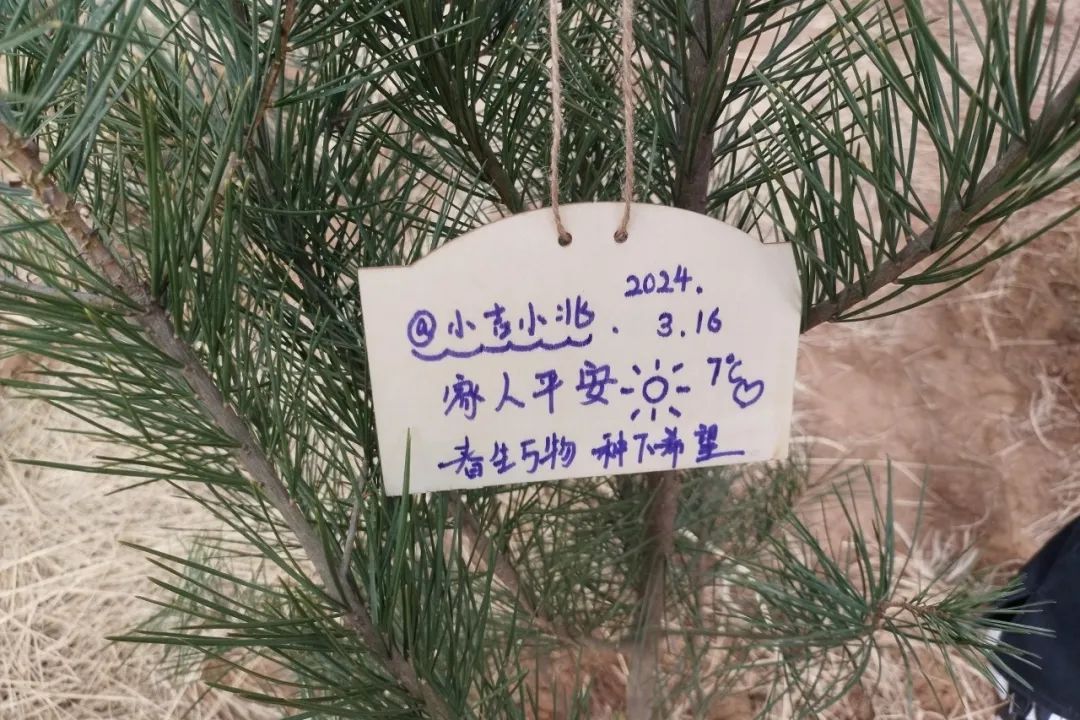 2024.
@小吉小兆. 3.16
家人平安 7℃
春生万物 种下希望